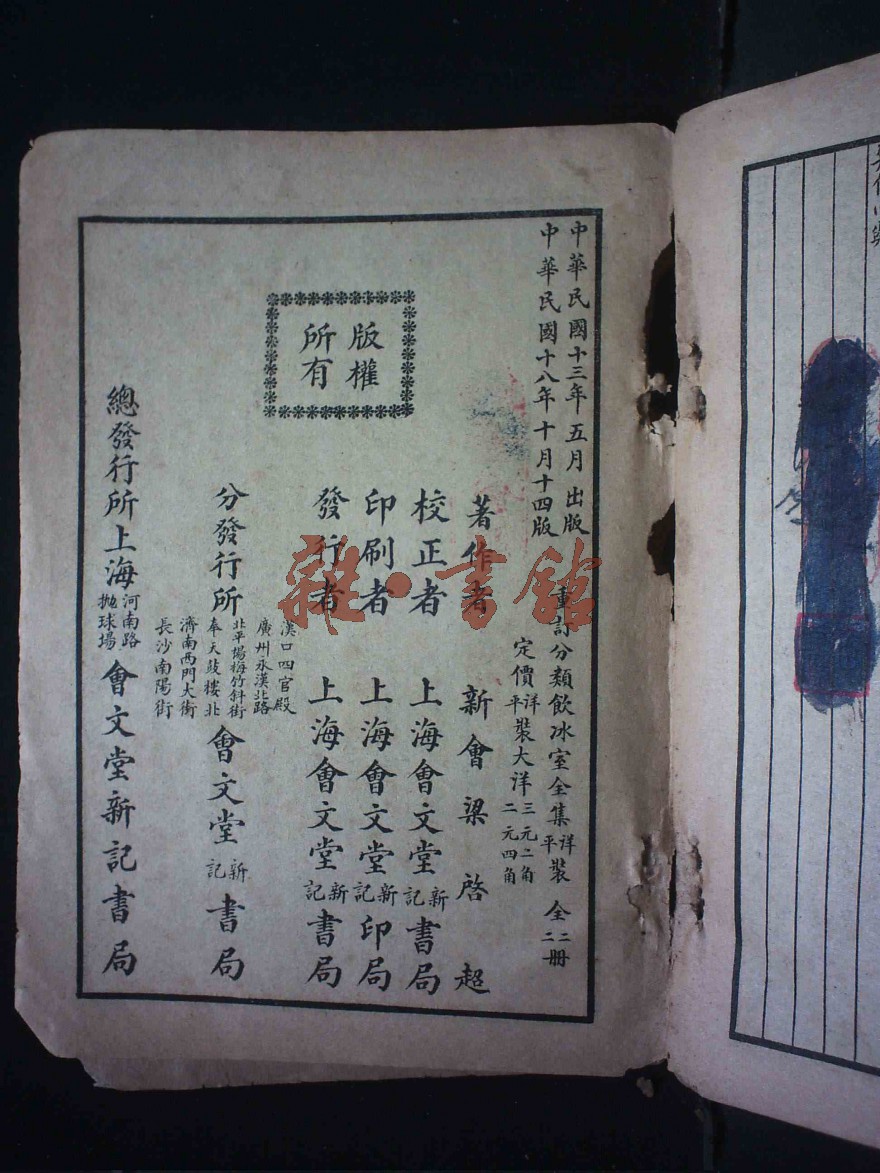 中華民國十三年五月出版
中華民國十八年十月十四版
重訂分類飲冰室全集洋平裝全二二冊
定價洋平裝大洋三元二角二元四角
著作者 新會梁啓超
校正者 上海會文堂新記書局
印刷者 上海會文堂新記印局
發行者 上海會文堂新記書局
版權
所有
分發行所
漢口四官殿
廣州永漢北路
北平楊梅竹斜街
奉天鼓樓北
濟南西門大街
長沙南陽街
會文堂新記書局
總發行所上海河南路拋球場會文堂新記書局
雜·書館